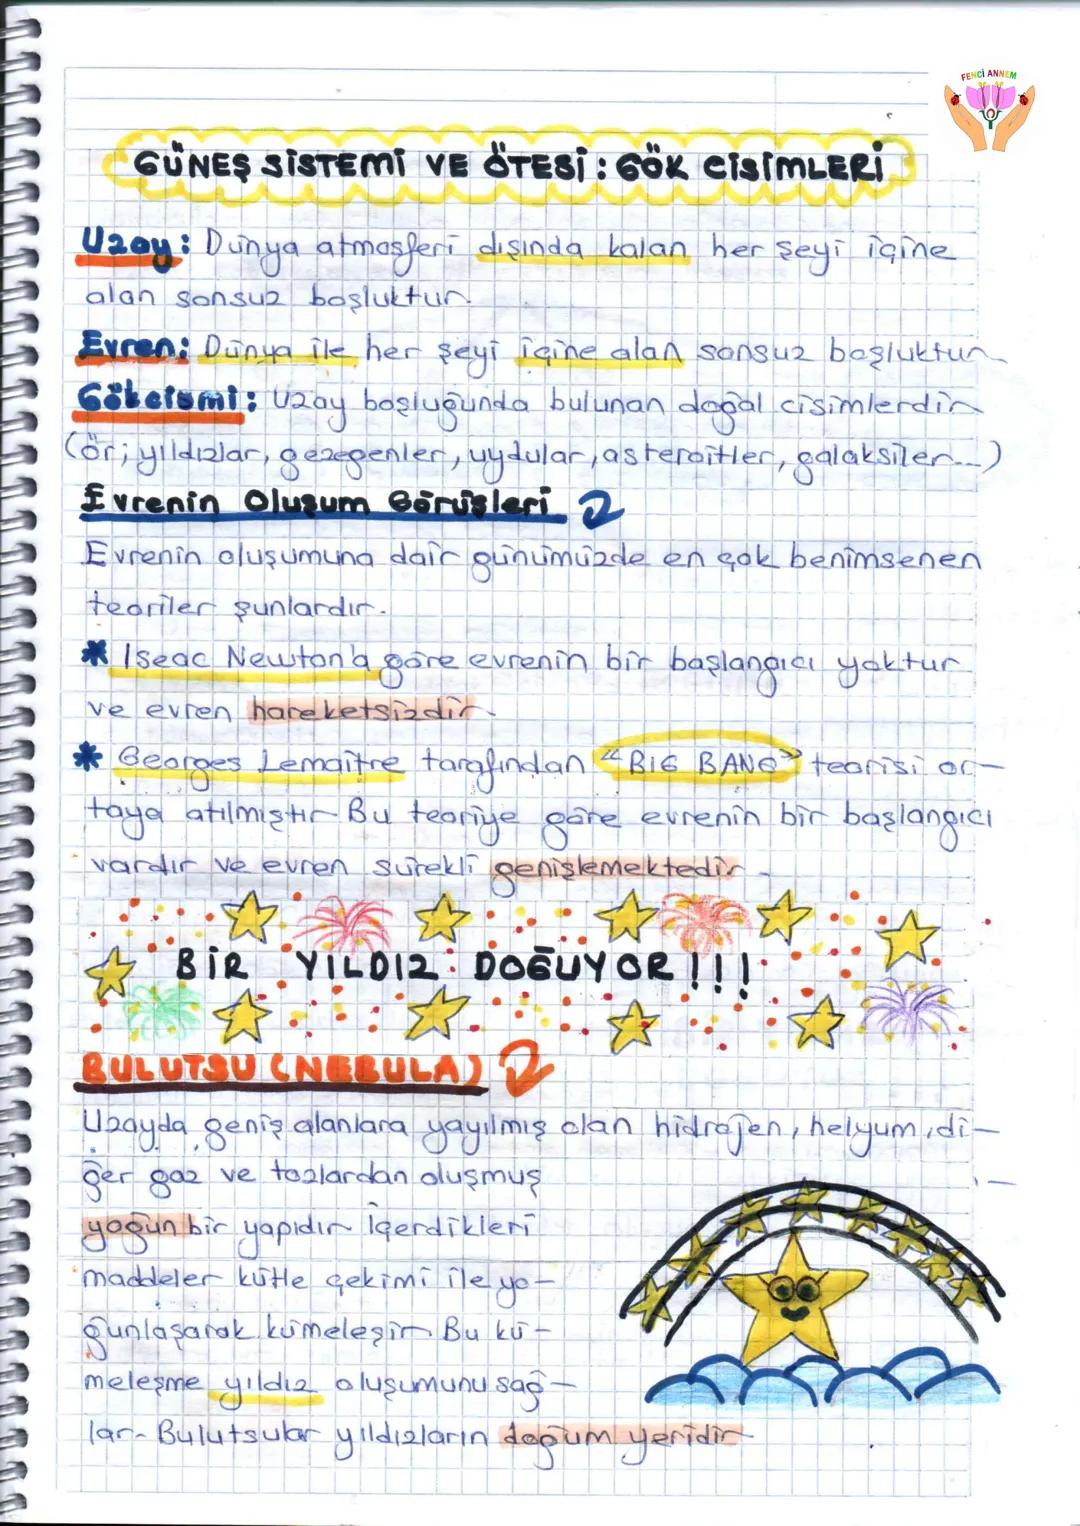 FENCİ ANNEM
GÜNEŞ SİSTEMİ VE ÖTESİ : GÖK CİSİMLERİ
Uzay : Dünya atmosferi dışında kalan her şeyi içine
alan sonsuz boşluktur.
Evren : Dünya ile her şeyi içine alan sonsuz boşluktur.
Gökcismi : Uzay boşluğunda bulunan doğal cisimlerdir.
(ör; yıldızlar, gezegenler, uydular, asteroitler, galaksiler...)
Evrenin Oluşum Görüşleri
Evrenin oluşumuna dair günümüzde en çok benimsenen
teoriler şunlardır.
* Iseac Newton'a göre evrenin bir başlangıcı yoktur
ve evren hareketsizdir.
* Georges Lemaître tarafından "BIG BANG" teorisi or-
taya atılmıştır. Bu teoriye göre evrenin bir başlangıcı
vardır ve evren sürekli genişlemektedir.
BİR YILDIZ DOĞUYOR !!!
BULUTSU (NEBULA)
Uzayda geniş alanlara yayılmış olan hidrojen, helyum, di-
ğer gaz ve tozlardan oluşmuş
yoğun bir yapıdır. İçerdikleri
maddeler kütle çekimi ile yo-
ğunlaşarak kümeleşir. Bu kü-
meleşme yıldız oluşumunu sağ-
lar. Bulutsular yıldızların doğum yeridir.